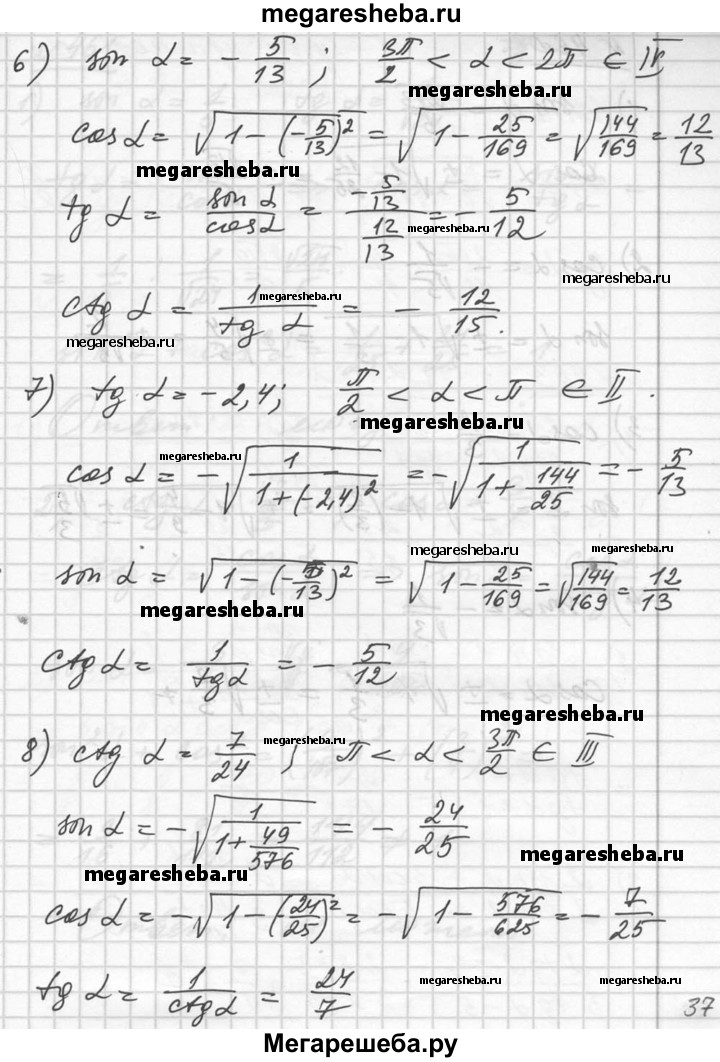 megaresheba.ru
6) sin α = - 5/13 ; 3π/2 < α < 2π ∈ IV
megaresheba.ru
cos α = √(1 - (-5/13)²) = √(1 - 25/169) = √(144/169) = 12/13
megaresheba.ru
tg α = sin α / cos α = (-5/13) / (12/13) = - 5/12
megaresheba.ru
megaresheba.ru
ctg α = 1 / tg α = - 12/15.
megaresheba.ru
megaresheba.ru
7) tg α = -2,4; π/2 < α < π ∈ II.
megaresheba.ru
megaresheba.ru
cos α = -√(1 / (1 + (-2,4)²)) = -√(1 / (1 + 144/25)) = - 5/13
megaresheba.ru
megaresheba.ru
megaresheba.ru
sin α = √(1 - (-5/13)²) = √(1 - 25/169) = √(144/169) = 12/13
megaresheba.ru
megaresheba.ru
ctg α = 1 / tg α = - 5/12
megaresheba.ru
8) ctg α = 7/24 ; π < α < 3π/2 ∈ III
megaresheba.ru
sin α = -√(1 / (1 + 49/576)) = - 24/25
megaresheba.ru
megaresheba.ru
cos α = -√(1 - (24/25)²) = -√(1 - 576/625) = - 7/25
tg α = 1 / ctg α = 24/7
megaresheba.ru
megaresheba.ru
37
Мегарешеба.ру